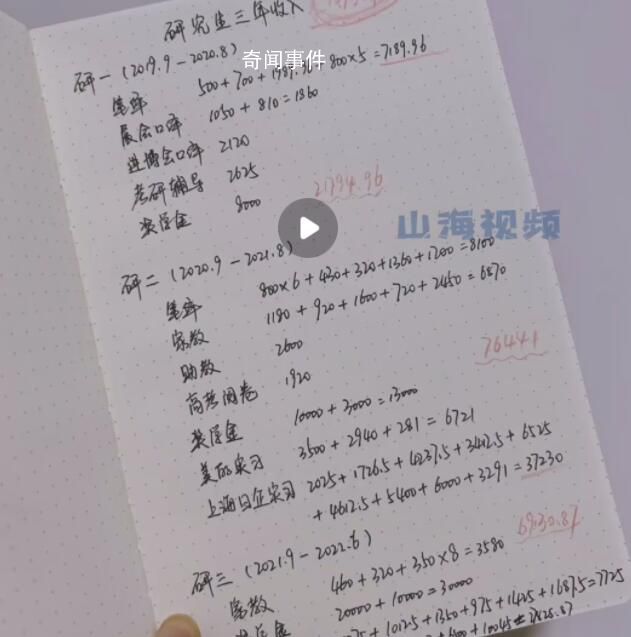 研究生三年收入
奇闻事件
研一 (2019.9 - 2020.8)
笔译 500 + 700 + 1989.96 + 800×5 = 7189.96
展会口译 1050 + 810 = 1860
进博会口译 2120
考研辅导 2625
奖学金 8000
21794.96
山海视频
研二 (2020.9 - 2021.8)
笔译 800×6 + 430 + 320 + 1360 + 1200 = 8100
家教 1180 + 920 + 1600 + 720 + 2450 = 6870
助教 2600
高考阅卷 1920
76441
奖学金 10000 + 3000 = 13000
美的实习 3500 + 2940 + 281 = 6721
上海日企实习 2025 + 1726.5 + 4237.5 + 3412.5 + 6525
+ 4612.5 + 5400 + 6000 + 3291 = 37230
69130.87
研三 (2021.9 - 2022.6)
家教 460 + 320 + 350×8 = 3580
奖学金 20000 + 10000 = 30000
+ 1012.5 + 1350 + 975 + 1425 + 1687.5 = 7725